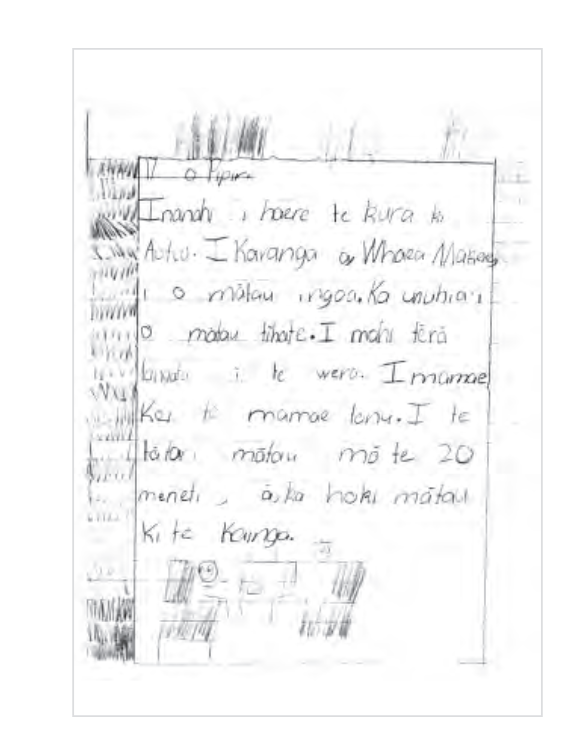 17 o Pipiri
Inanahi i haere te kura ki
I Karanga a Whaea
i o mātau ingoa. Ka unuhia i
o mātau tihate. I mahi tērā
i te wera. I mamae
Kei te mamae tonu. I te
tātari mātau mō te 20
meneti, ā, ka hoki mātau
ki te Kainga.